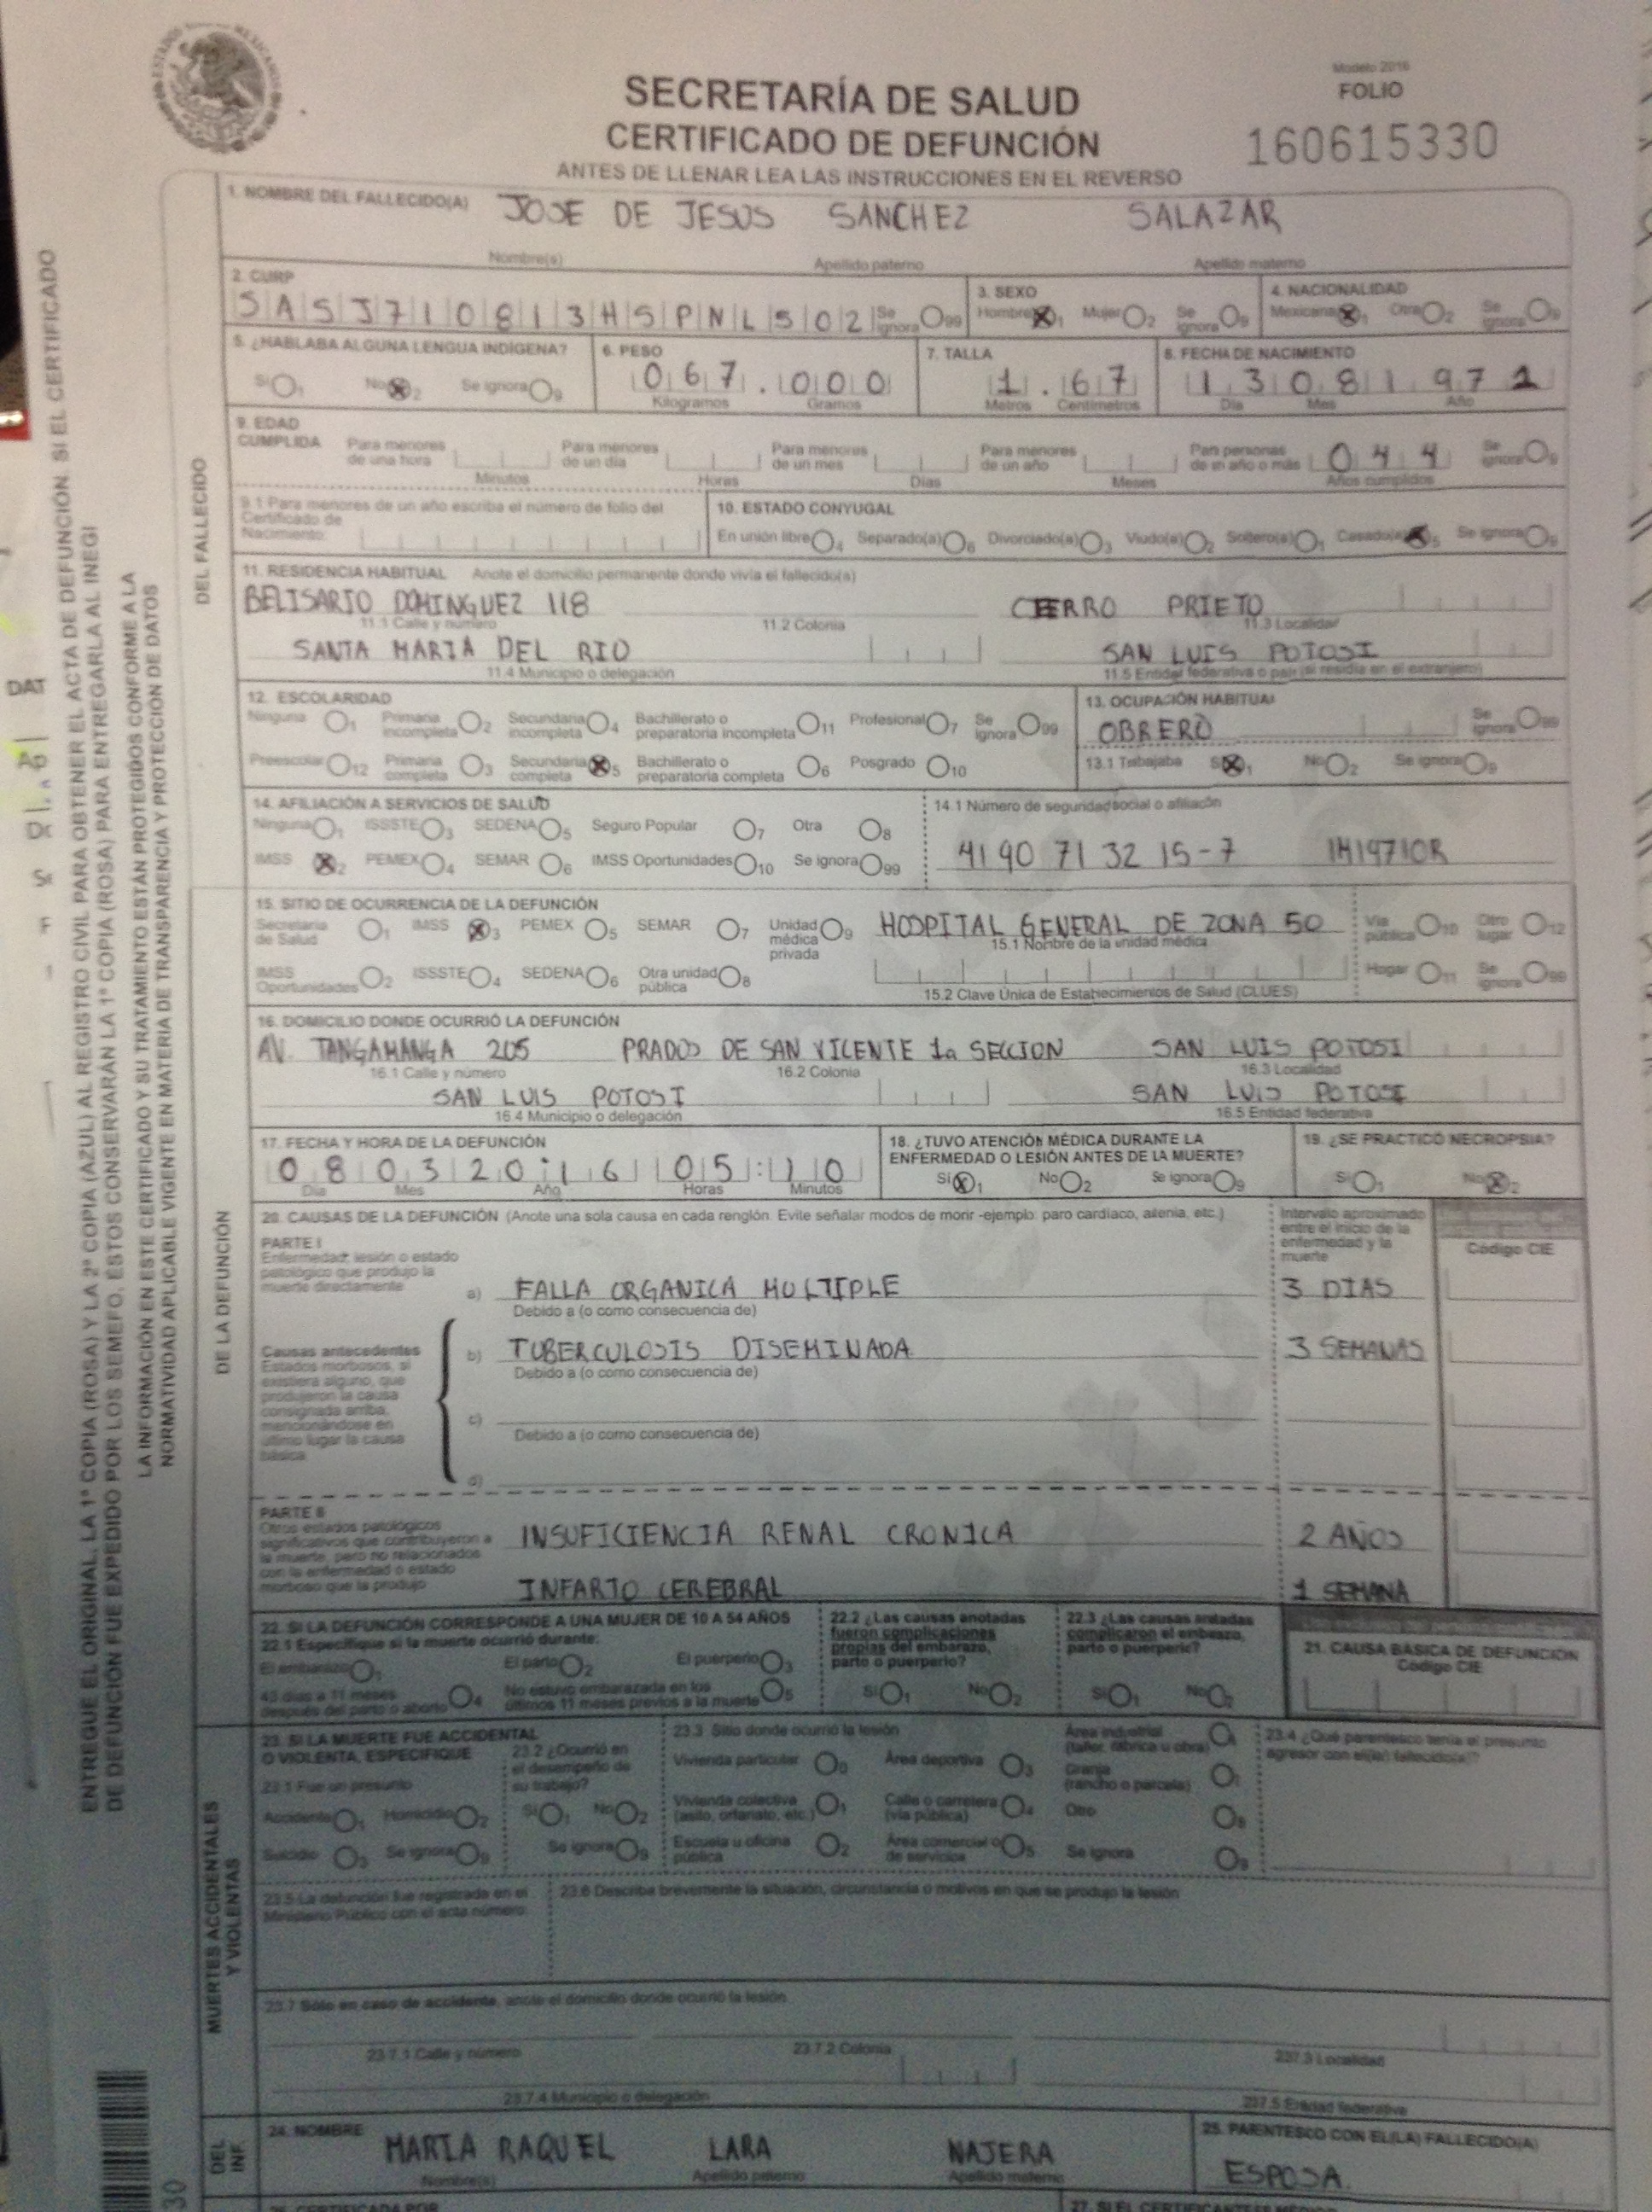 Modelo 2016
SECRETARÍA DE SALUD
FOLIO
CERTIFICADO DE DEFUNCIÓN
160615330
ANTES DE LLENAR LEA LAS INSTRUCCIONES EN EL REVERSO
1. NOMBRE DEL FALLECIDO(A) JOSE DE JESUS SANCHEZ SALAZAR
Nombre(s) Apellido paterno Apellido materno
2. CURP 3. SEXO 4. NACIONALIDAD
SASJ710813HSPNL502 Se ignora 99 Hombre 1 Mujer 2 Se ignora 9 Mexicana 1 Otra 2 Se ignora 9
5. ¿HABLABA ALGUNA LENGUA INDÍGENA? 6. PESO 7. TALLA 8. FECHA DE NACIMIENTO
Sí 1 No 2 Se ignora 9 067.000 1.67 13081971
Kilogramos Gramos Metros Centímetros Día Mes Año
9. EDAD CUMPLIDA Para menores de una hora Para menores de un día Para menores de un mes Para menores de un año Para personas de un año o más 044 Se ignora 9
Minutos Horas Días Meses Años cumplidos
9.1 Para menores de un año escriba el número de folio del Certificado de Nacimiento:
10. ESTADO CONYUGAL
En unión libre 4 Separado(a) 6 Divorciado(a) 3 Viudo(a) 2 Soltero(a) 1 Casado(a) 5 Se ignora 9
11. RESIDENCIA HABITUAL Anote el domicilio permanente donde vivía el fallecido(a)
BELISARIO DOMINGUEZ 118 CERRO PRIETO
11.1 Calle y número 11.2 Colonia 11.3 Localidad
SANTA MARIA DEL RIO SAN LUIS POTOSI
11.4 Municipio o delegación 11.5 Entidad federativa o país (si residía en el extranjero)
12. ESCOLARIDAD 13. OCUPACIÓN HABITUAL
Ninguna 1 Primaria incompleta 2 Secundaria incompleta 4 Bachillerato o preparatoria incompleta 11 Profesional 7 Se ignora 99 OBRERO Se ignora 99
Preescolar 12 Primaria completa 3 Secundaria completa 5 Bachillerato o preparatoria completa 6 Posgrado 10 13.1 Trabajaba Sí 1 No 2 Se ignora 9
14. AFILIACIÓN A SERVICIOS DE SALUD 14.1 Número de seguridad social o afiliación
Ninguna 1 ISSSTE 3 SEDENA 5 Seguro Popular 7 Otra 8
IMSS 2 PEMEX 4 SEMAR 6 IMSS Oportunidades 10 Se ignora 99 4190 71 32 15-7 1M1971OR
15. SITIO DE OCURRENCIA DE LA DEFUNCIÓN
Secretaría de Salud 1 IMSS 3 PEMEX 5 SEMAR 7 Unidad médica privada 9 HOSPITAL GENERAL DE ZONA 50 Vía pública 10 Otro lugar 12
15.1 Nombre de la unidad médica
IMSS Oportunidades 2 ISSSTE 4 SEDENA 6 Otra unidad pública 8 Hogar 11 Se ignora 99
15.2 Clave Única de Establecimientos de Salud (CLUES)
16. DOMICILIO DONDE OCURRIÓ LA DEFUNCIÓN
AV. TANGAMANGA 205 PRADOS DE SAN VICENTE 1a SECCION SAN LUIS POTOSI
16.1 Calle y número 16.2 Colonia 16.3 Localidad
SAN LUIS POTOSI SAN LUIS POTOSI
16.4 Municipio o delegación 16.5 Entidad federativa
17. FECHA Y HORA DE LA DEFUNCIÓN 18. ¿TUVO ATENCIÓN MÉDICA DURANTE LA ENFERMEDAD O LESIÓN ANTES DE LA MUERTE? 19. ¿SE PRACTICÓ NECROPSIA?
08032016 05:10 Sí 1 No 2 Se ignora 9 Sí 1 No 2
Día Mes Año Horas Minutos
20. CAUSAS DE LA DEFUNCIÓN (Anote una sola causa en cada renglón. Evite señalar modos de morir -ejemplo: paro cardíaco, astenia, etc.) Intervalo aproximado entre el inicio de la enfermedad y la muerte Código CIE
PARTE I
Enfermedad, lesión o estado patológico que produjo la muerte directamente
a) FALLA ORGANICA MULTIPLE 3 DIAS
Debido a (o como consecuencia de)
b) TUBERCULOSIS DISEMINADA 3 SEMANAS
Debido a (o como consecuencia de)
Causas antecedentes
Estados morbosos, si existiera alguno, que produjeron la causa consignada arriba, mencionándose en último lugar la causa básica
c)
Debido a (o como consecuencia de)
d)
PARTE II
Otros estados patológicos significativos que contribuyeron a la muerte, pero no relacionados con la enfermedad o estado morboso que la produjo
INSUFICIENCIA RENAL CRONICA 2 AÑOS
INFARTO CEREBRAL 1 SEMANA
22. SI LA DEFUNCIÓN CORRESPONDE A UNA MUJER DE 10 A 54 AÑOS
22.1 Especifique si la muerte ocurrió durante:
El embarazo 1 El parto 2 El puerperio 3
43 días a 11 meses después del parto o aborto 4 No estuvo embarazada en los últimos 11 meses previos a la muerte 5
22.2 ¿Las causas anotadas fueron complicaciones propias del embarazo, parto o puerperio?
Sí 1 No 2
22.3 ¿Las causas anotadas complicaron el embarazo, parto o puerperio?
Sí 1 No 2
21. CAUSA BÁSICA DE DEFUNCIÓN
Código CIE
23. SI LA MUERTE FUE ACCIDENTAL O VIOLENTA, ESPECIFIQUE
23.1 Fue un presunto
Accidente 1 Homicidio 2
Suicidio 3 Se ignora 9
23.2 ¿Ocurrió en el desempeño de su trabajo?
Sí 1 No 2
Se ignora 9
23.3 Sitio donde ocurrió la lesión
Vivienda particular 0 Área deportiva 3 Área industrial (taller, fábrica u obra) 6
Vivienda colectiva (asilo, orfanato, etc.) 1 Calle o carretera (vía pública) 4 Granja (rancho o parcela) 7
Otro 8
Escuela u oficina pública 2 Área comercial o de servicios 5 Se ignora 9
23.4 ¿Qué parentesco tenía el presunto agresor con el(la) fallecido(a)?
23.5 La defunción fue registrada en el Ministerio Público con el acta número:
23.6 Describa brevemente la situación, circunstancia o motivos en que se produjo la lesión
23.7 Sólo en caso de accidente, anote el domicilio donde ocurrió la lesión
23.7.1 Calle y número 23.7.2 Colonia 23.7.3 Localidad
23.7.4 Municipio o delegación 23.7.5 Entidad federativa
24. NOMBRE MARIA RAQUEL LARA NAJERA
Nombre(s) Apellido paterno Apellido materno
25. PARENTESCO CON EL(LA) FALLECIDO(A)
ESPOSA
26. CERTIFICADA POR 27. SI EL CERTIFICANTE ES MÉDICO
DEL FALLECIDO
DE LA DEFUNCIÓN
MUERTES ACCIDENTALES Y VIOLENTAS
DEL INF.
ENTREGUE EL ORIGINAL, LA 1ª COPIA (ROSA) Y LA 2ª COPIA (AZUL) AL REGISTRO CIVIL PARA OBTENER EL ACTA DE DEFUNCIÓN. SI EL CERTIFICADO
DE DEFUNCIÓN FUE EXPEDIDO POR LOS SEMEFO, ÉSTOS CONSERVARÁN LA 1ª COPIA (ROSA) PARA ENTREGARLA AL INEGI
LA INFORMACIÓN EN ESTE CERTIFICADO Y SU TRATAMIENTO ESTÁN PROTEGIDOS CONFORME A LA
NORMATIVIDAD APLICABLE VIGENTE EN MATERIA DE TRANSPARENCIA Y PROTECCIÓN DE DATOS
DAT
30